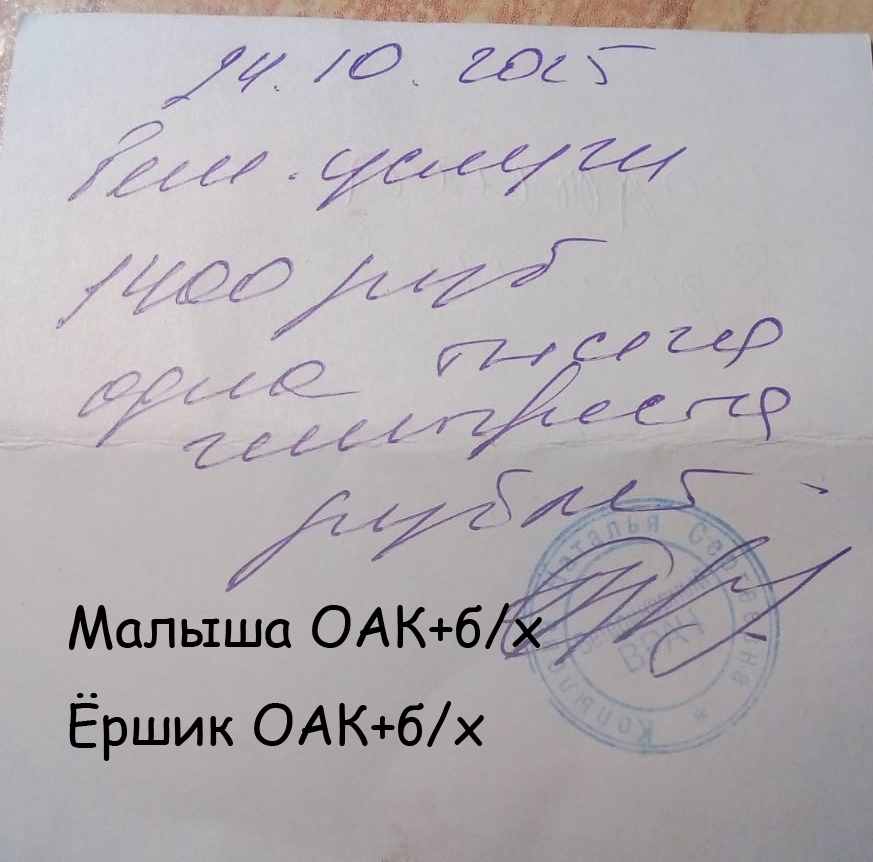 24.10.2025
Вет. услуги
1400 руб
одна тысяча
четыреста
рублей
Наталья Сергеевна *
Ветеринарный
ВРАЧ
Малыша ОАК+б/х
Ёршик ОАК+б/х